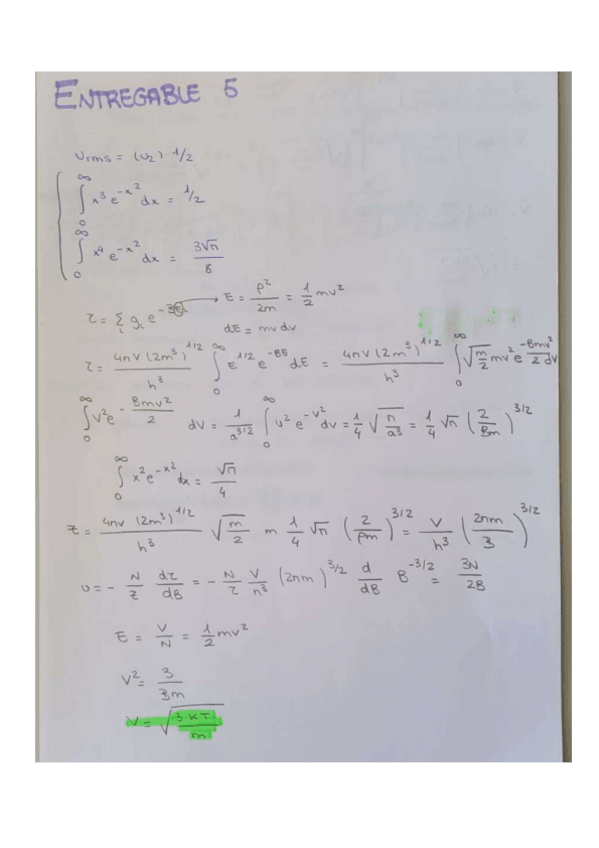 ENTREGABLE 5
Urms = (U2) 1/2
∫₀^∞ x³ e^{-x²} dx = 1/2
∫₀^∞ x⁴ e^{-x²} dx = 3√π / 8
Z = Σᵢ gᵢ e^{-BE} → E = p²/2m = 1/2 mv²
dE = mv dv
Z = 4πV (2m³)^{1/2} / h³ ∫₀^∞ E^{1/2} e^{-BE} dE = 4πV (2m³)^{1/2} / h³ ∫₀^∞ √(m/2) mv² e^{-Bmv²/2} dv
∫₀^∞ v² e^{-Bmv²/2} dv = 1/a^{3/2} ∫₀^∞ v² e^{-v²} dv = 1/4 √(π/a³) = 1/4 √π (2/Bm)^{3/2}
∫₀^∞ x² e^{-x²} dx = √π / 4
Z = 4πV (2m³)^{1/2} / h³ √(m/2) m 1/4 √π (2/βm)^{3/2} = V/h³ (2πm/B)^{3/2}
U = - N/Z dZ/dB = - N/Z V/h³ (2πm)^{3/2} d/dB B^{-3/2} = 3N/2B
E = V/N = 1/2 mv²
V² = 3/Bm
V = √(3·KT/m)